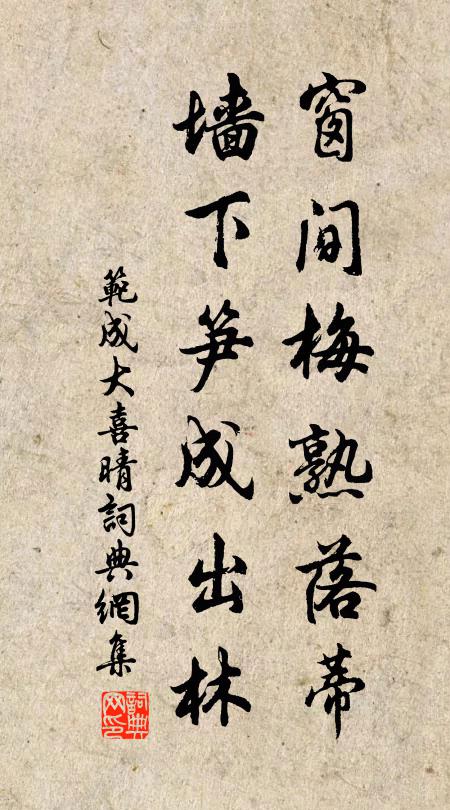 窗间梅熟落蒂
墙下笋成出林
範成大喜晴詞典網集
詞典网印